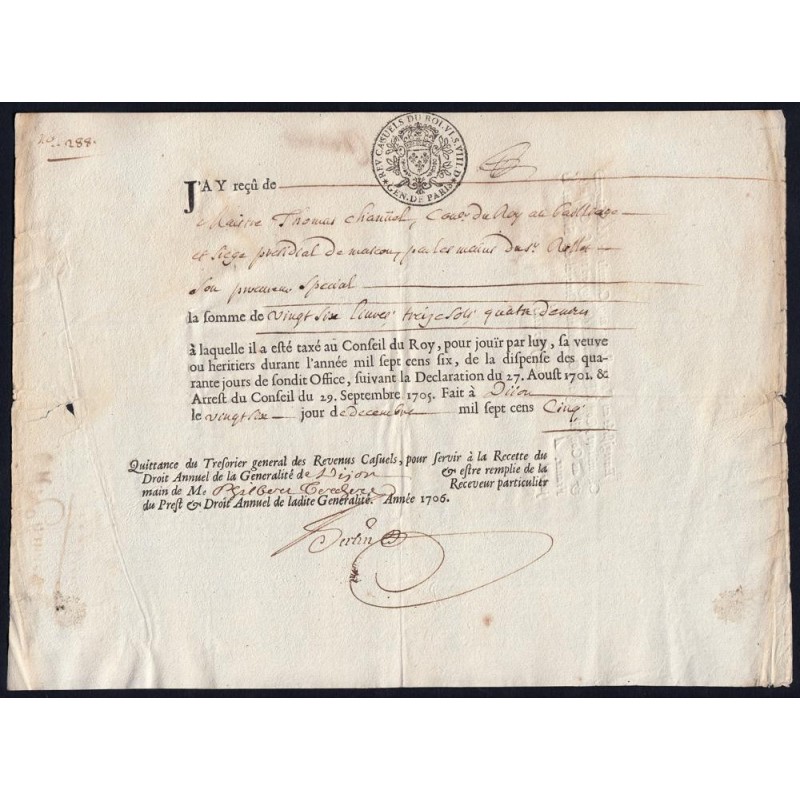 288.
REV. CASUELS DU ROI. VI. S. VIII. D.
GEN. DE PARIS
J'AY reçû de
Maistre Thomas Couer. du Roy au Bailliage
et Siege presidial de mascon, par les mains du sr.
son procureur special
la somme de vingt six livres treize sols quatre deniers
à laquelle il a esté taxé au Conseil du Roy, pour jouïr par luy, sa veuve
ou heritiers durant l'année mil sept cens six, de la dispense des qua-
rante jours de sondit Office, suivant la Declaration du 27. Aoust 1701. &
Arrest du Conseil du 29. Septembre 1705. Fait à Dijon
le vingt six jour de decembre mil sept cens Cinq
Quittance du Tresorier general des Revenus Casuels, pour servir à la Recette du
Droit Annuel de la Generalité de Dijon & estre remplie de la
main de Me Receveur particulier
du Prest & Droit Annuel de ladite Generalité. Année 1706.
Bertin